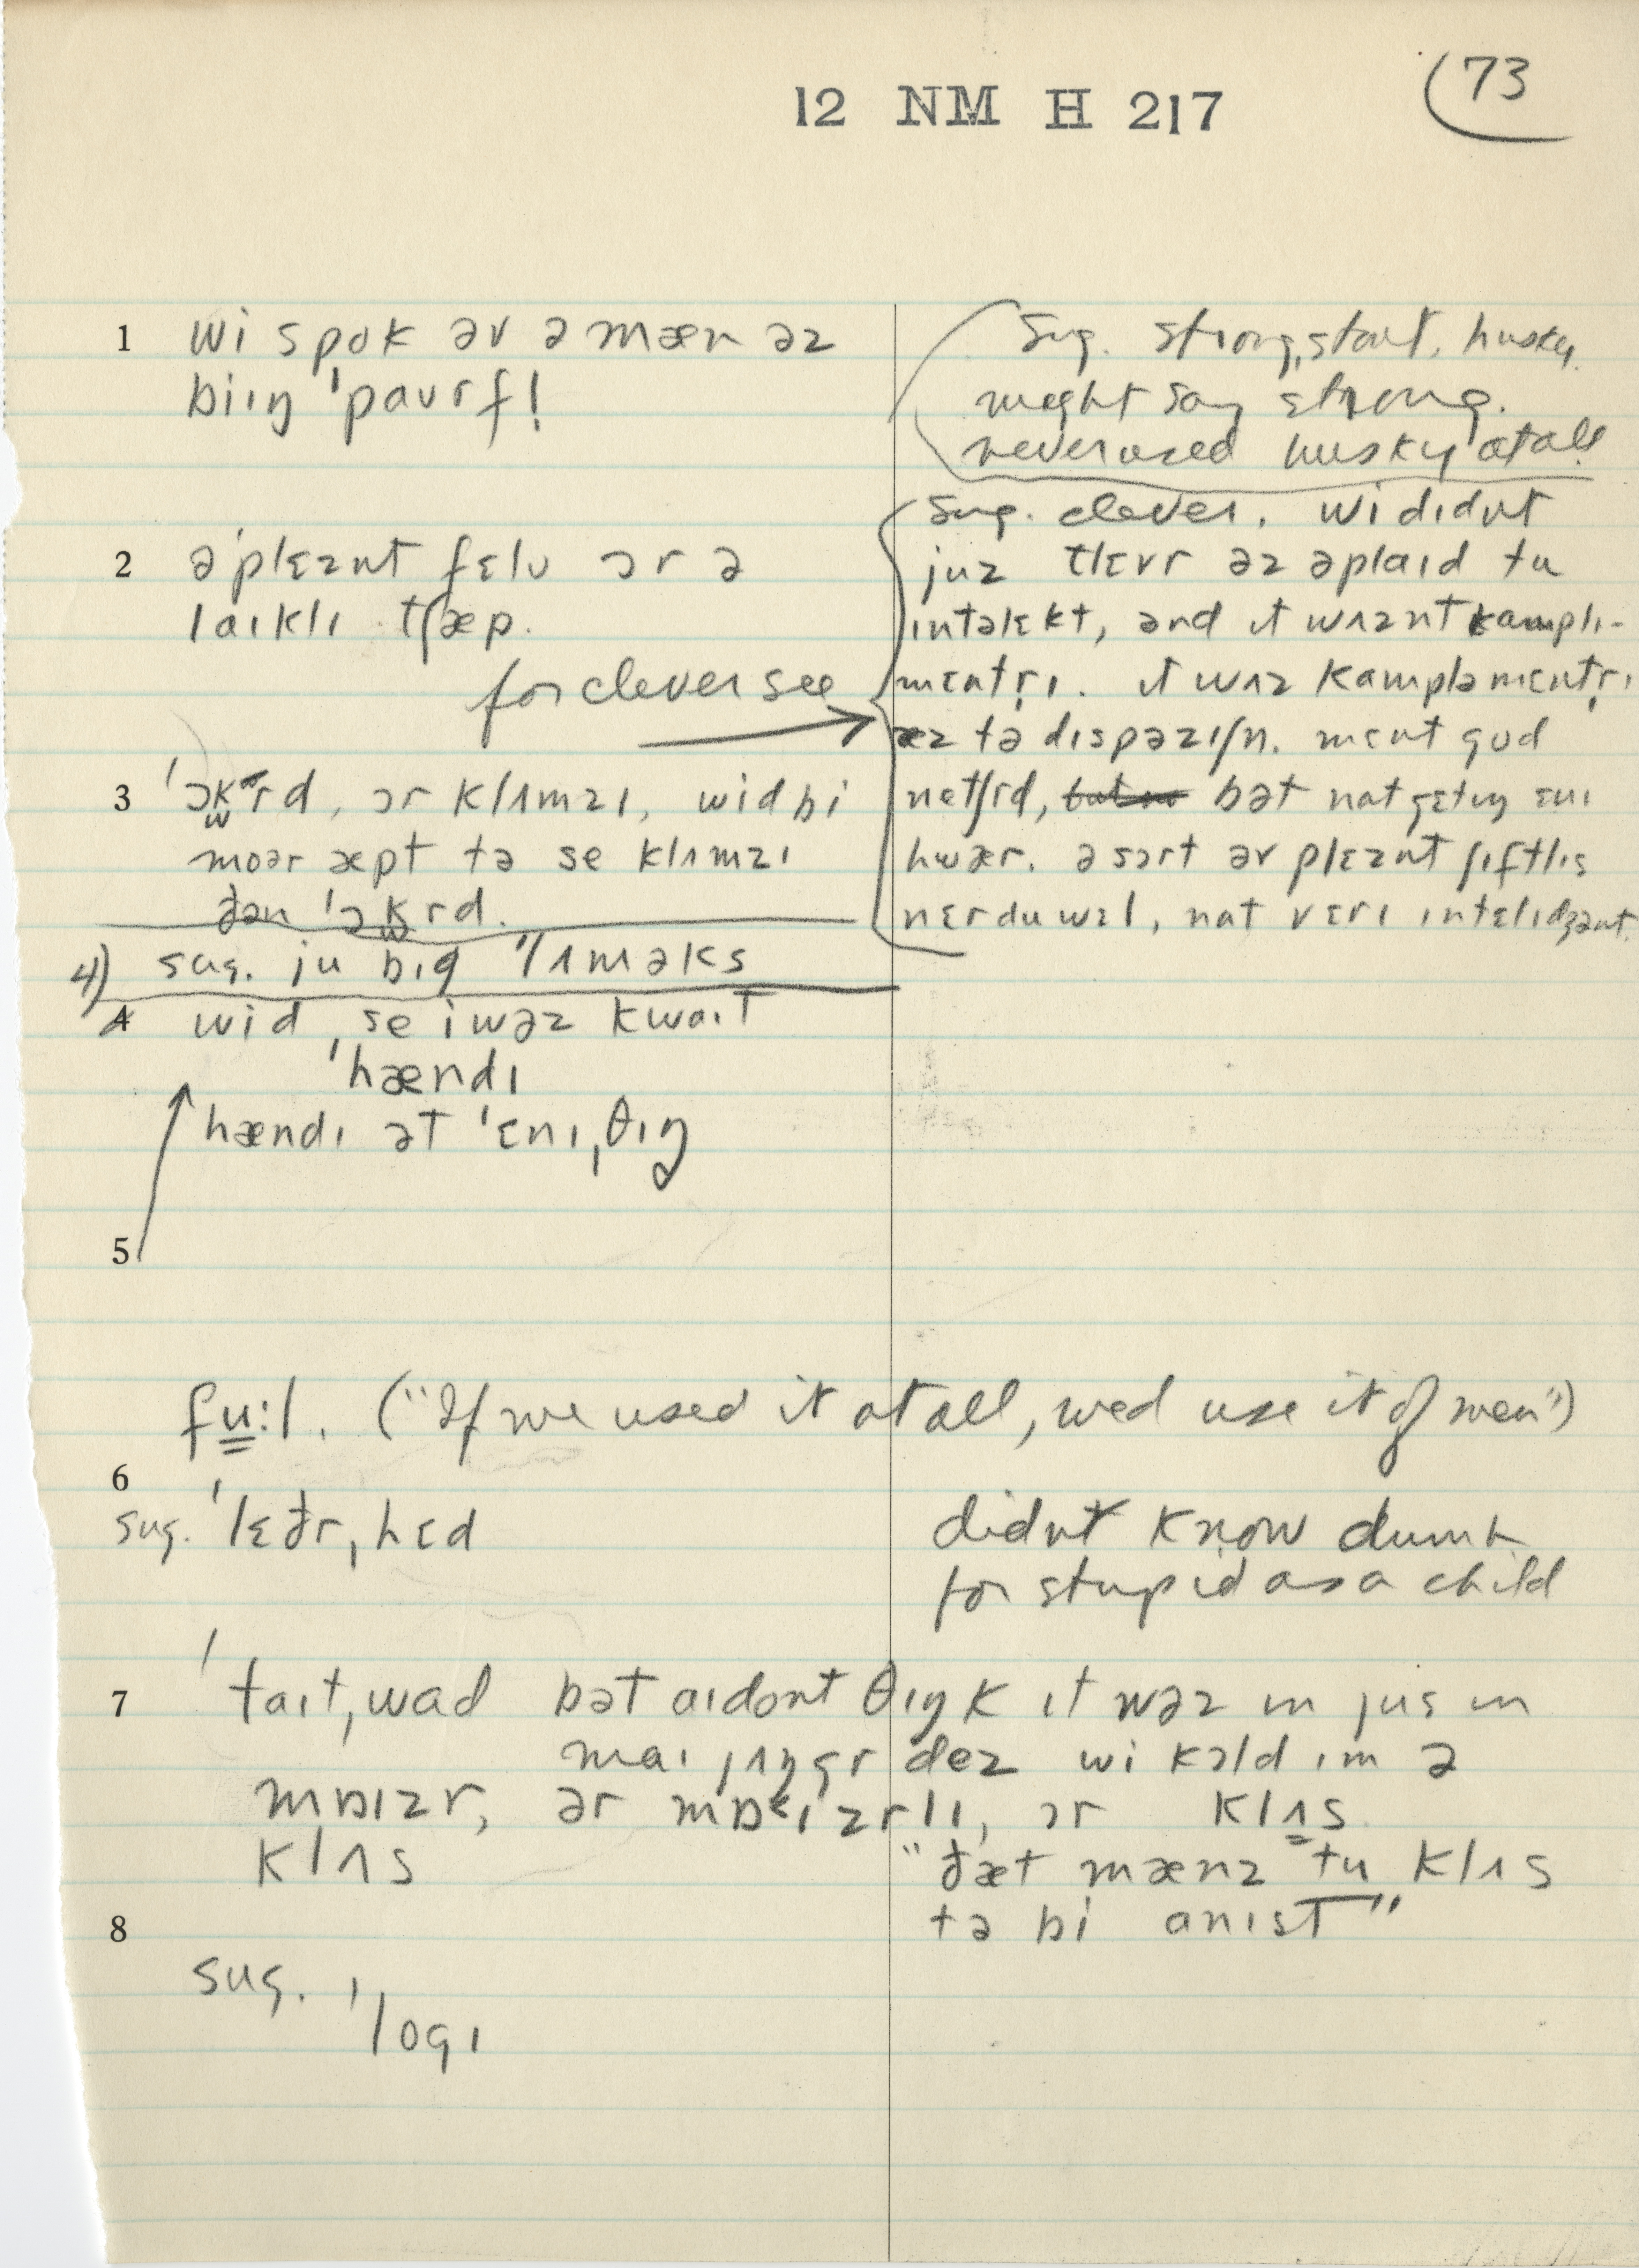 12 NM H 217
73
1 wi spok əv ə mæn əz
biɪŋ ˈpaʊrfl
sug. strong, stout, husky.
might say strong.
never used husky at all.
2 ə ˈplɛznt fɛlʊ ɔr ə
laɪklɪ tʃæp.
for clever see →
sug. clever. wi dɪdnt
juz tlɛvr əz əplaɪd tu
ɪntəlɛkt, ənd ɪt wʌznt kampli-
mɛntr̩ɪ. ɪt wʌz kampləmɛntr̩ɪ
æz tə dɪspəzɪʃn. mɛnt gud
netʃrd, bət nat gɛtɪŋ ɛnɪ
hwær. ə sɔrt əv plɛznt ʃɪftlɪs
nɛrduwɛl, nat vɛrɪ ɪntɛlɪdʒənt.
3 ˈɔkwrd, ɔr klʌmzɪ, wid bi
moər æpt tə se klʌmzɪ
ðən ˈɔkwrd.
4) sug. ju bɪg ˈlʌməks
4 wid se i wəz kwaɪt
ˈhændɪ
hændɪ ət ˈɛnɪˌθɪŋ
5
fu:l. ("If we used it at all, wed use it of men")
6
sug. ˈlɛðrˌhɛd
didnt know dumb
for stupid as a child
7 ˈtaɪtˌwad bət aɪ dont θɪŋk ɪt wəz ɪn jus ɪn
maɪ jʌŋgr dez wi kɔld ɪm ə
mɒɪzr, ər mɒɪzrlɪ, ɔr klʌs
klʌs
"ðæt mænz tu klʌs
tə bi anɪst"
8
sug. ˈlogɪ